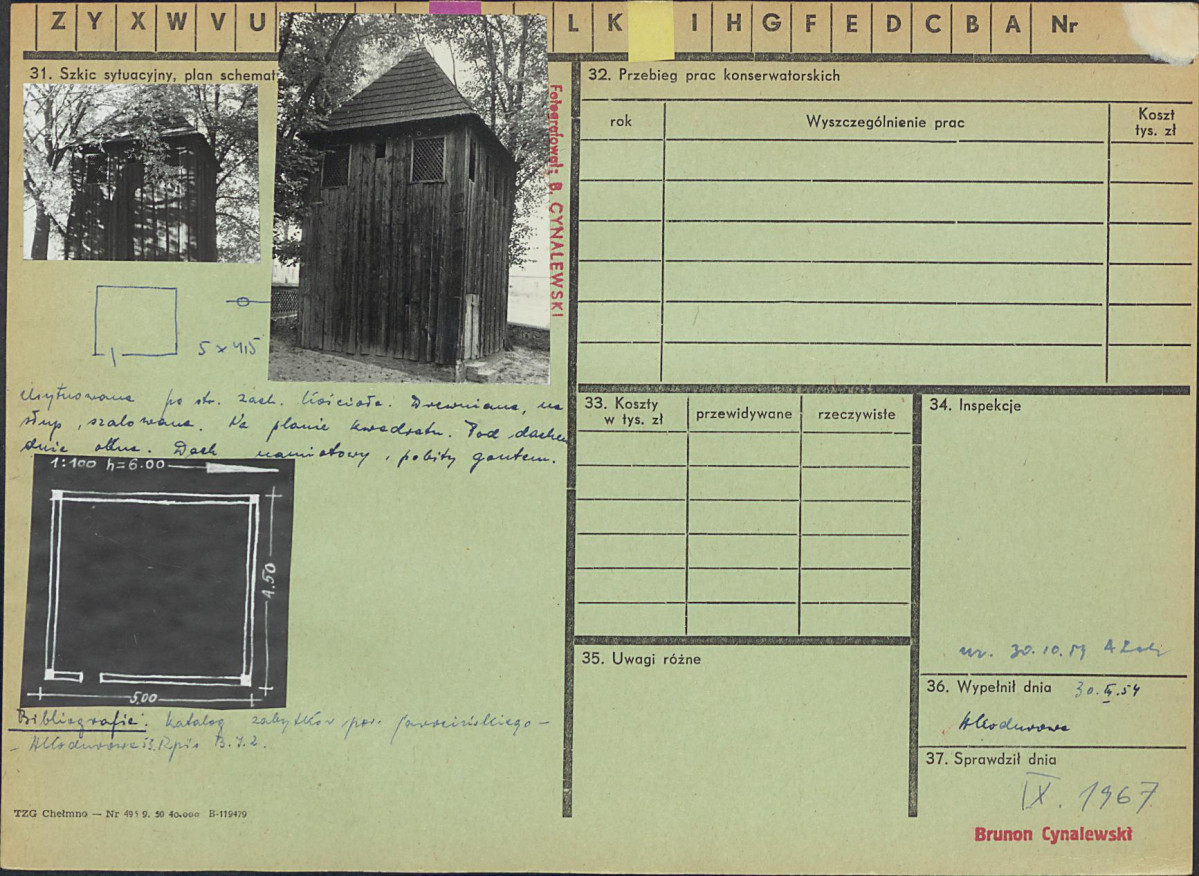 Z Y X W V U L K I H G F E D C B A Nr
31. Szkic sytuacyjny, plan schemat
Fotografował: B. CYNALEWSKI
5 x 4,5
Usytuowana po str. zach. kościoła. Drewniana, na
słup, szalowana. Na planie kwadratu. Pod dachem
okna. Dach namiotowy, pobity gontem.
1:100 h=6.00
4.50
5,00
Bibliografia: Katalog zabytków pow. Jarocińskiego –
TZG Chełmno — Nr 491 9. 50 40.000 B-119479
32. Przebieg prac konserwatorskich
rok
Wyszczególnienie prac
Koszt
tys. zł
33. Koszty
w tys. zł
przewidywane
rzeczywiste
34. Inspekcje
30.10.59
35. Uwagi różne
36. Wypełnił dnia
37. Sprawdził dnia
IX. 1967
Brunon Cynalewski